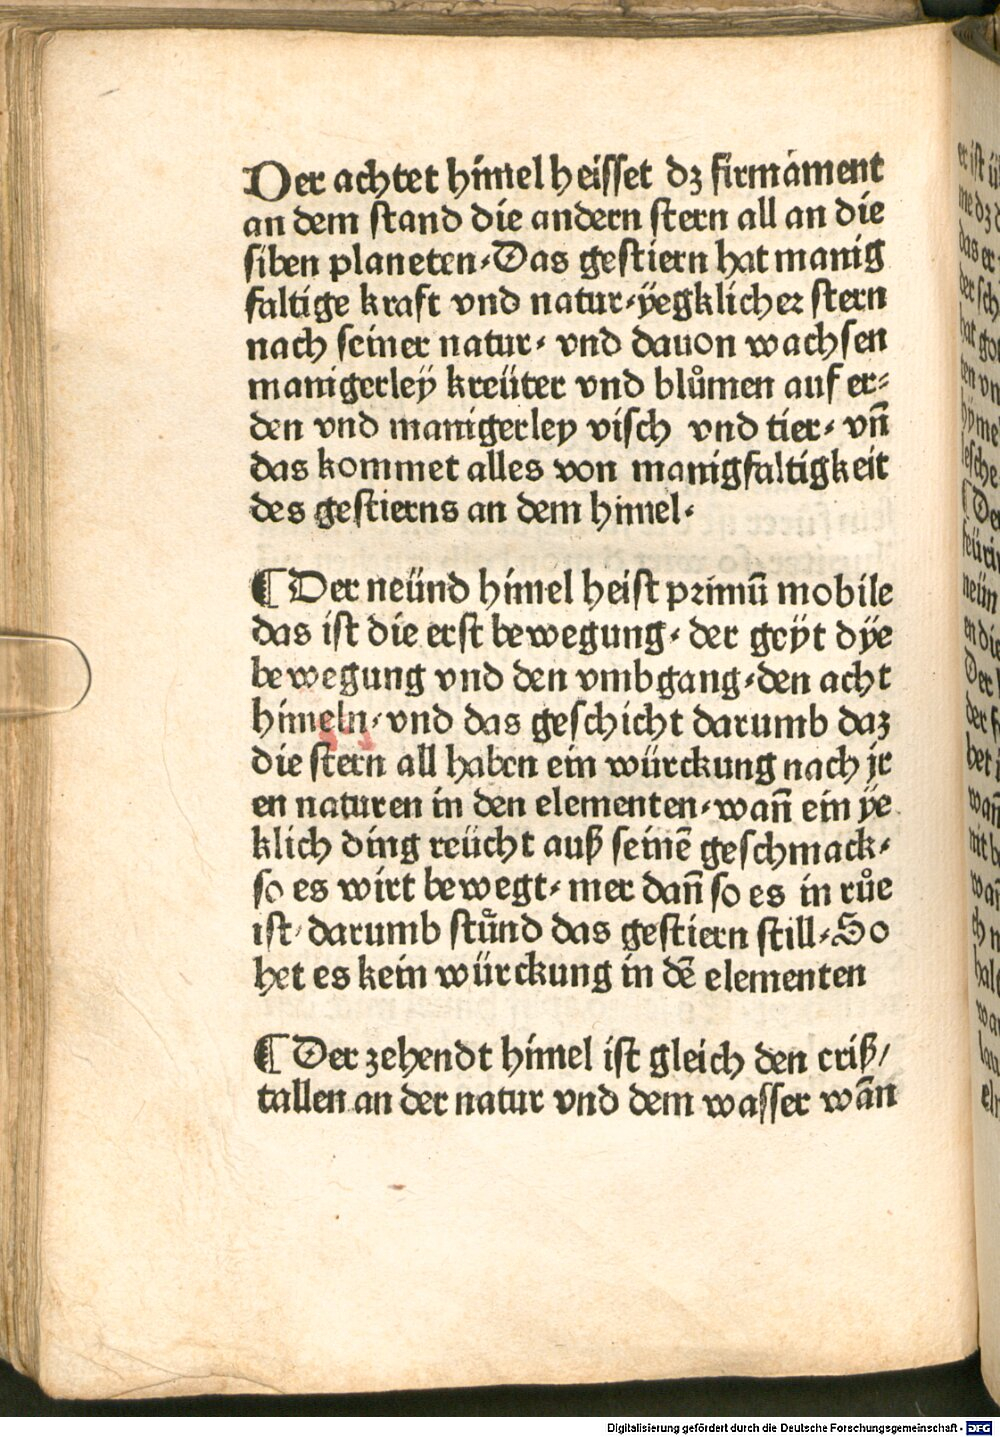 Der achtet himel heisset dz firmament
an dem stand die andern stern all an die
siben planeten. Das gestiern hat manig
faltige kraft vnd natur. ÿegklicher stern
nach seiner natur. vnd dauon wachsen
manigerleÿ kreüter vnd blůmen auf er⸗
den vnd manigerley visch vnd tier. vn̄
das kommet alles von manigfaltigkeit
des gestierns an dem himel.
¶ Der neünd himel heist primū mobile
das ist die erst bewegung. der geÿt dÿe
bewegung vnd den vmbgang. den acht
himeln. vnd das geschicht darumb daz
die stern all haben ein würckung nach jr
en naturen in den elementen. wan̄ ein ÿe
klich ding reücht auß seinē geschmack.
so es wirt bewegt. mer dan̄ so es in růe
ist. darumb stůnd das gestiern still. So
het es kein würckung in dē elementen
¶ Der zehendt himel ist gleich den criß/
tallen an der natur vnd dem wasser wān
Digitalisierung gefördert durch die Deutsche Forschungsgemeinschaft - DFG